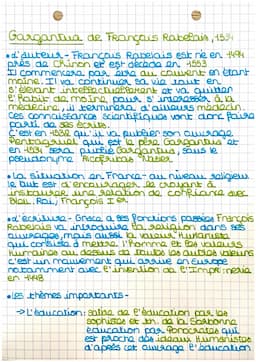 Gargantua de François Rabelais, 1534
• d'auteur - François Rabelais est né en 1494
près de Chinon et est décédé en 1553
Il commencera par être au couvent en étant
moine. Il va continuer sa vie tout en
s'élevant intellectuellement et va quitter
l'habit de moine, pour s'intéresser à la
médecine, il terminera d'ailleurs médecin.
Ces connaissances scientifiques vont donc faire
parti de ses écrits.
C'est en 1532 qu'il va publier son ouvrage
Pentagruel qui est le père Gargantua et
en 1534 sera publié Gargantua, sous le
pseudonyme Alcofribas Nasier.
• La situation en France - au niveau religieux
le but est d'encourager le croyant à
instaurer une relation de confiance avec
Dieu. Roi, François Ier
• d'écriture - Grâce à ses fonctions passées François
Rabelais va introduire la religion dans ses
ouvrages, mais aussi la valeur Humaniste
qui consiste à mettre l'Homme et les valeurs
humaines au dessus de toutes les autres valeurs
c'est un mouvement qui arrive en Europe
notamment avec l'invention de l'Imprimerie
en 1448
• les thèmes importants -
→ L'éducation: satire de l'éducation par les
sophistes et don de la Sorbonne
éducation par Ponocrates qui
est proche des idéaux Humanistes
d'après cet ouvrage l'éducation